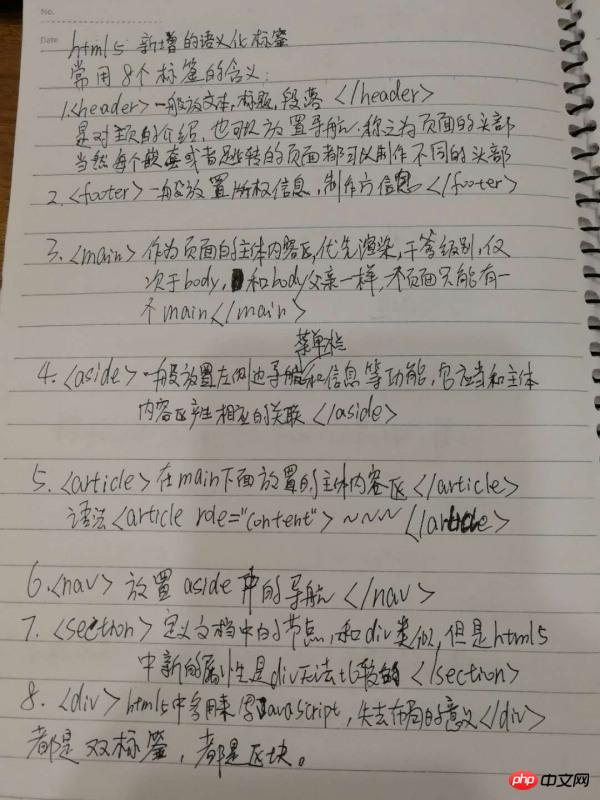 No.
Date
html5 新增的语义化标签
常用8个标签的含义:
1.<header>一般放文本,标题,段落 </header>
是对主页的介绍,也可以放置导航.称之为页面的头部
当然每个嵌套或者是跳转的页面都可以制作不同的头部
2.<footer>一般放置版权信息,制作方信息 </footer>
3.<main>作为页面的主体内容区,优先渲染,干等级别,仅
次于body, 和body父亲一样,一个页面只能有一
个main</main>
菜单栏
4.<aside>一般放置左侧边导航和信息等功能,它应当和主体
内容区产生相应的关联 </aside>
5.<article>在main下面放置的主体内容区</article>
语法<article role="content">~~~~</article>
6.<nav>放置aside中的导航</nav>
7.<section>定义文档中的节点,和div类似,但是html5
中新的属性是div无法比较的 </section>
8.<div>html5中多用来 JavaScript,失去布局的意义</div>
都是双标签,都是区块。
php 中文网